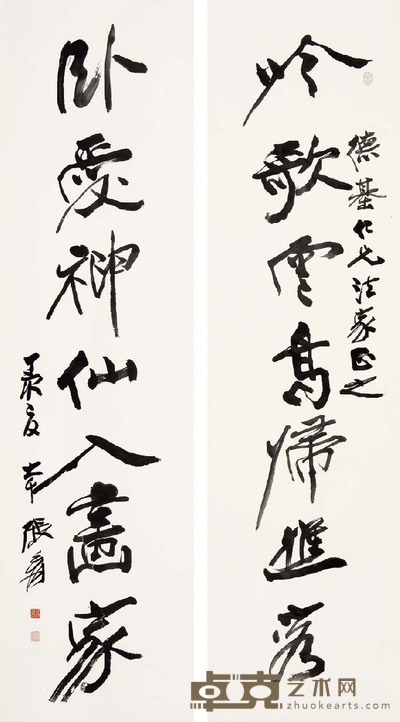 德基仁兄法家正之
吟歌雲高歸
臥愛神仙入畫家
大千張爰
卓克艺术网
zhuokearts.com